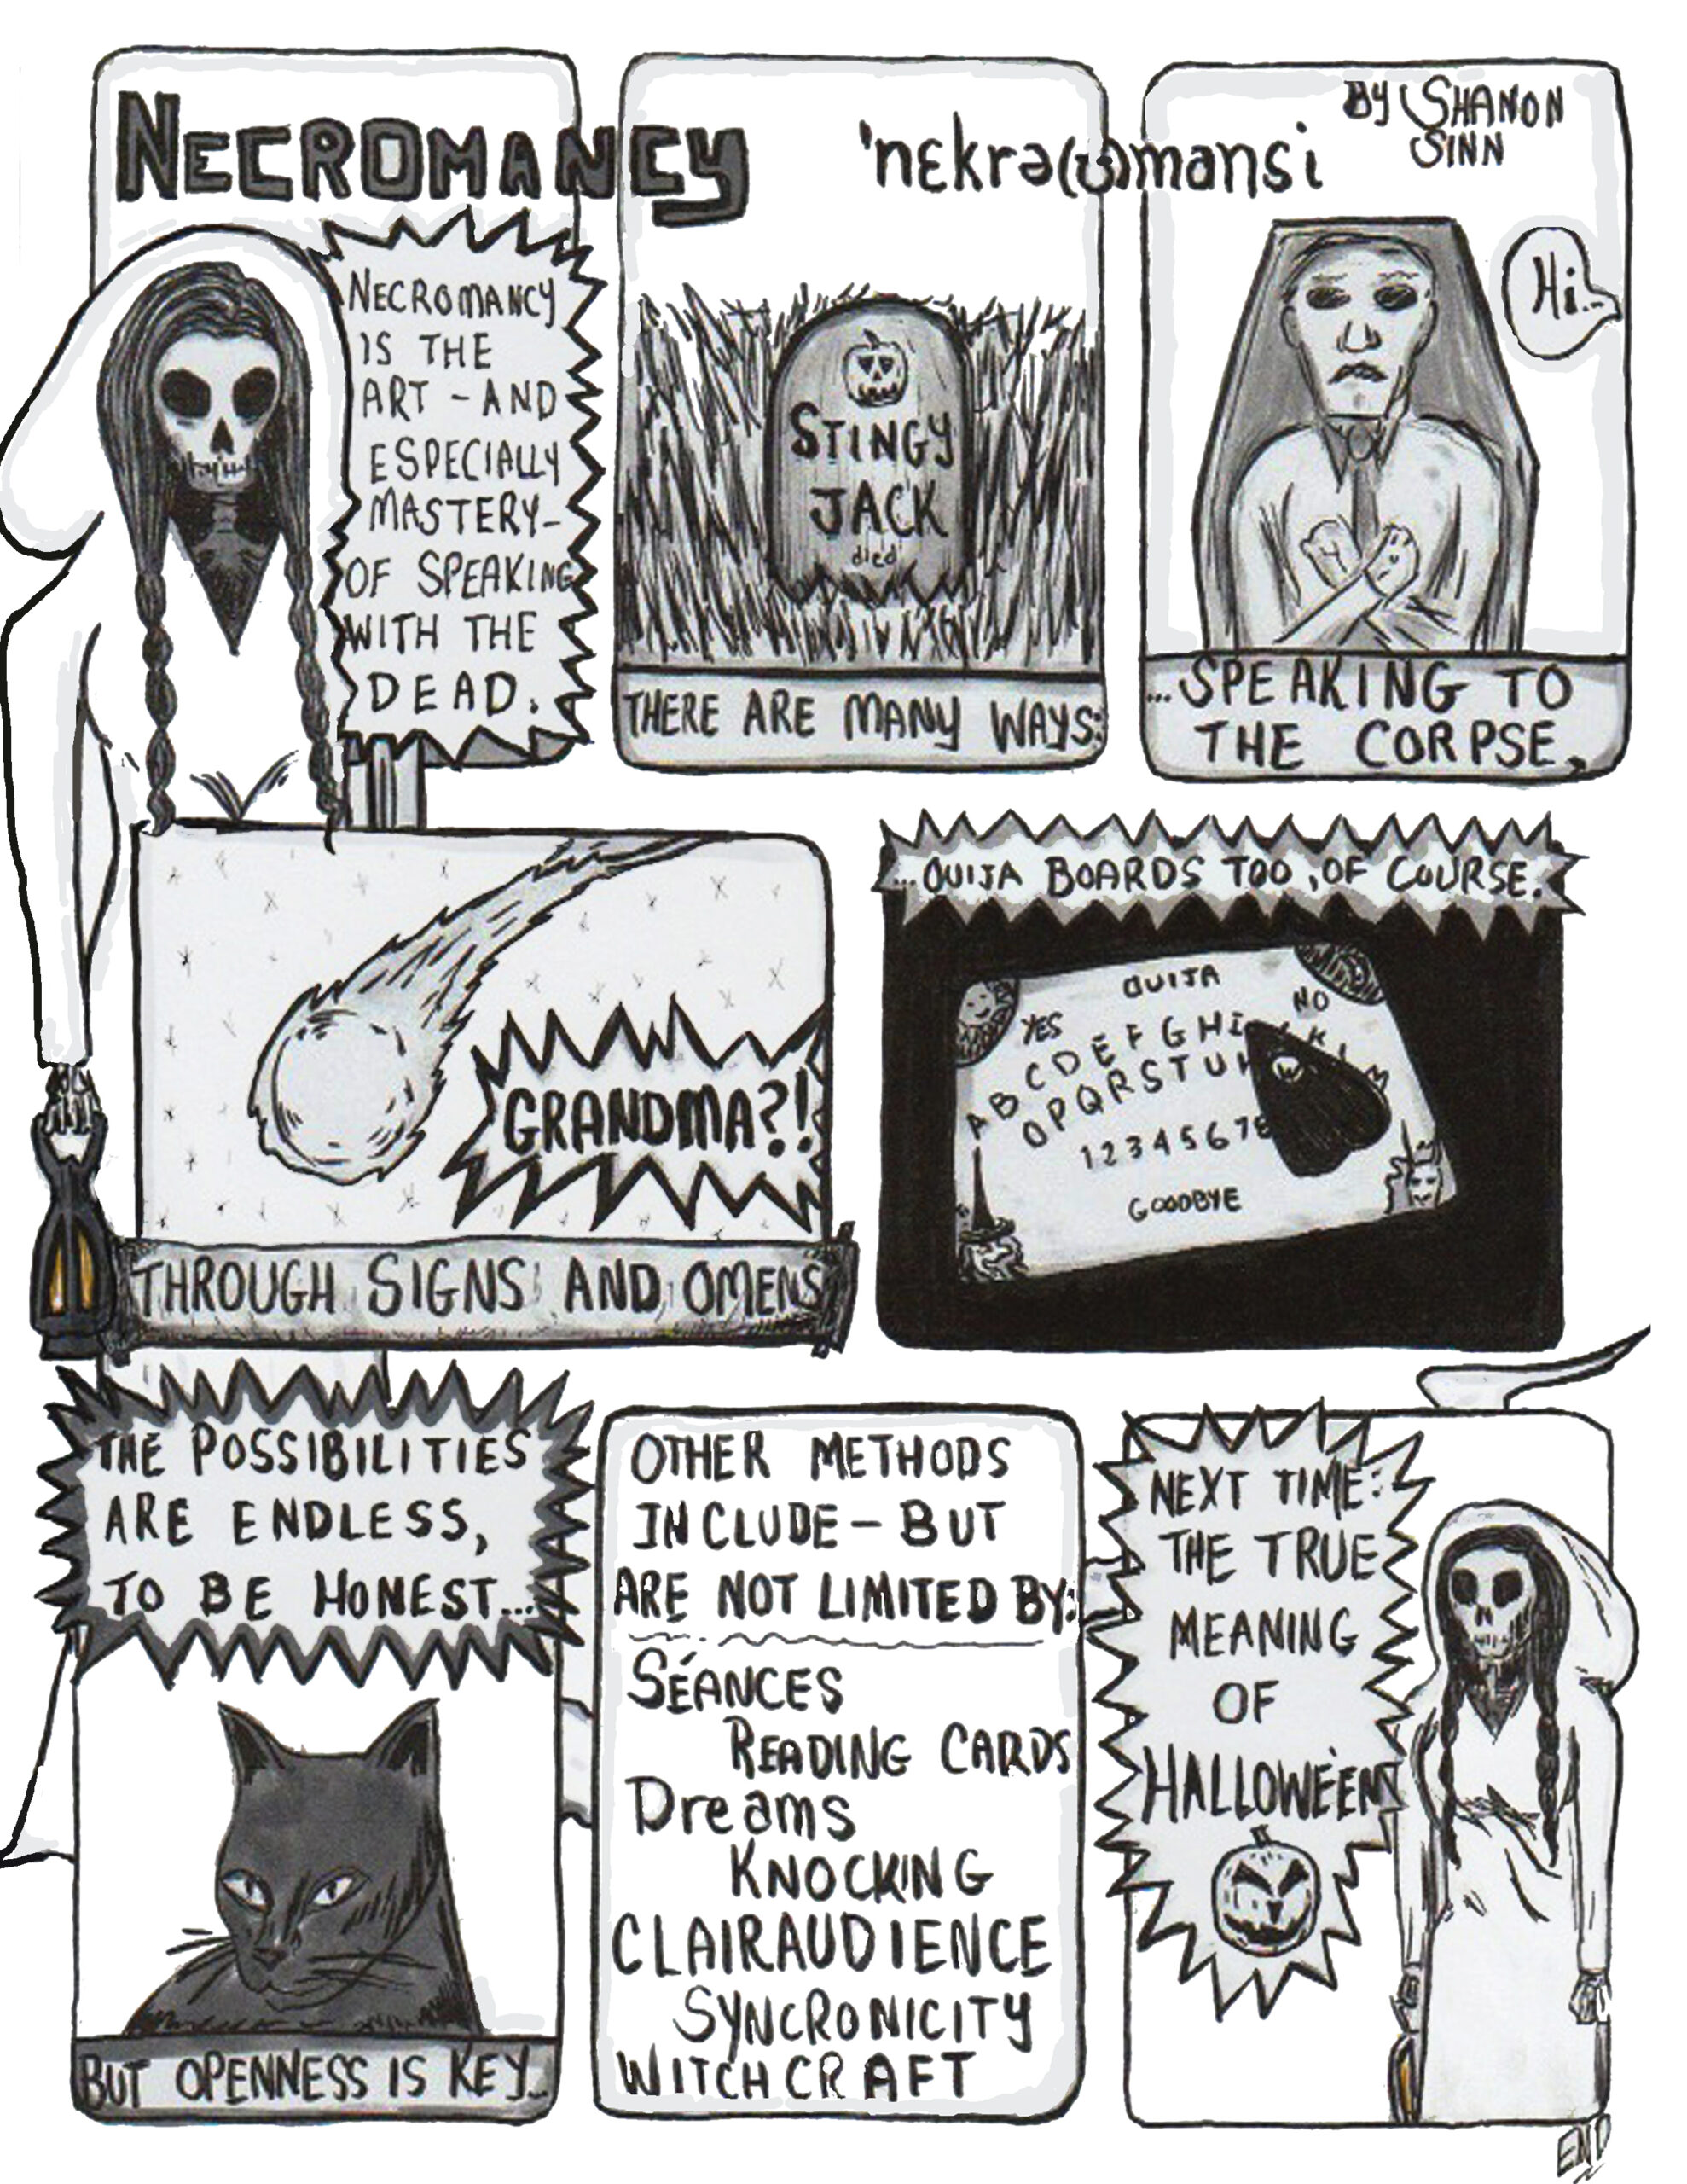 NECROMANCY
'nɛkrə(ʊ)mansi
BY SHANON
SINN
NECROMANCY
IS THE
ART - AND
ESPECIALLY
MASTERY-
OF SPEAKING
WITH THE
DEAD.
STINGY
JACK
died
THERE ARE MANY WAYS:
Hi.
...SPEAKING TO
THE CORPSE,
GRANDMA?!
THROUGH SIGNS AND OMENS
...OUIJA BOARDS TOO, OF COURSE.
OUIJA
YES
NO
A B C D E F G H I K L M
O P Q R S T U
1 2 3 4 5 6 7 8
GOODBYE
THE POSSIBILITIES
ARE ENDLESS,
TO BE HONEST...
BUT OPENNESS IS KEY...
OTHER METHODS
INCLUDE - BUT
ARE NOT LIMITED BY:
SÉANCES
READING CARDS
Dreams
KNOCKING
CLAIRAUDIENCE
SYNCRONICITY
WITCHCRAFT
NEXT TIME:
THE TRUE
MEANING
OF
HALLOWE'EN
END